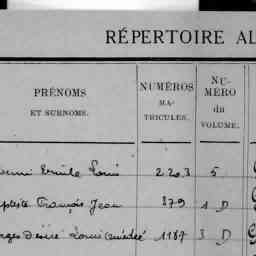 RÉPERTOIRE AL
PRÉNOMS
ET SURNOMS.
NUMÉROS
MA-
TRICULES.
NU-
MÉRO
du
VOLUME.
Emile Louis 2203 5
François Jean 879 1 D
Désiré Louis 1187 3 D